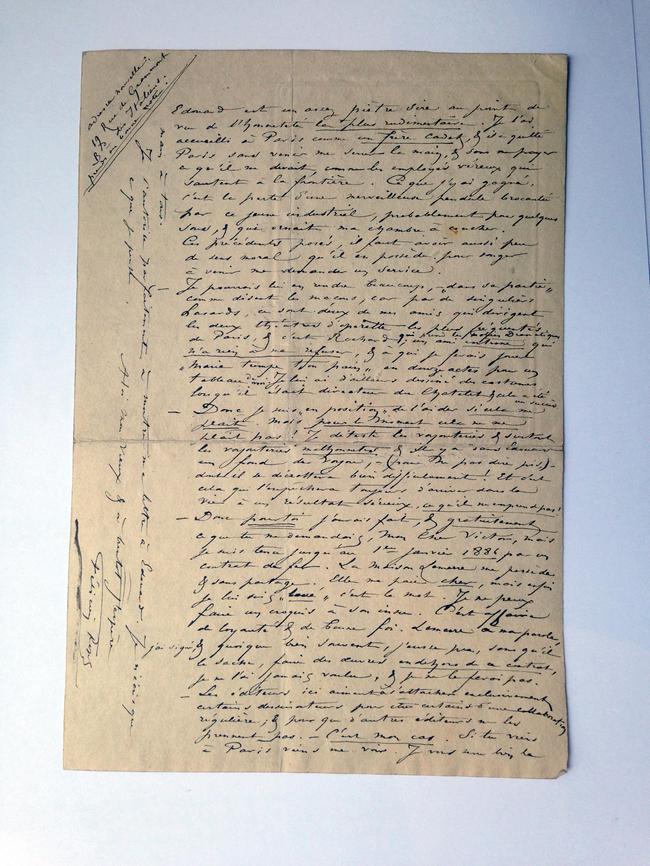 adresse nouvelle:
19 Rue de Grammont
Edouard est un assez piètre sire au point de
vue de l'honnêteté la plus rudimentaire. Je l'ai
accueilli à Paris comme un frère cadet, & il a quitté
Paris sans venir me serrer la main, & sans me payer
ce qu'il me devait, comme les employés véreux qui
sautent à la frontière. Ce que j'y ai gagné,
c'est la perte d'une merveilleuse pendule brocantée
par ce jeune industriel, probablement pour quelques
sous, & qui ornait ma chambre à coucher.
Ces précédents posés, il faut avoir aussi peu
de sens moral qu'il en possède, pour songer
à venir me demander un service.
Je pourrais lui en rendre beaucoup, "dans sa partie"
comme disent les maçons, car par de singuliers
hasards, ce sont deux de mes amis qui dirigent
les deux théâtres d'opérette les plus fréquentés
de Paris, & c'est Rochard, un ami intime qui
n'a rien à me refuser, & à qui je ferais jouer
"Marie trempe ton pain" en douze actes par un
tableau. Je lui ai d'ailleurs dessiné des costumes
lorsqu'il était directeur du Châtelet & cela a été
un succès
– Donc je suis "en position" de l'aider si cela me
plaît. Mais pour le moment cela ne me
plaît pas! Je déteste les roytoteries & surtout
les malhonnêtes, & il y a dans Edouard
un fond de (pour ne pas dire pis)
dont il se débarrassera bien difficilement! Et c'est
cela qui l'empêchera toujours d'arriver dans la
vie à un résultat sérieux, ce qu'il ne comprend pas!
– Donc pour toi j'aurais fait, & gratuitement
ce que tu me demandais, mon cher Victor, mais
je suis tenu jusqu'au 1er janvier 1886 par un
contrat de fer. La Maison Lemerre me possède
& sans partage. Elle me paie cher, mais enfin
je lui suis "loué" c'est le mot. Je ne peux
faire un croquis à son insu. C'est affaire
de loyauté & de bonne foi. Lemerre a ma parole
j'ai signé, & quoique bien souvent, j'eusse pu, sans qu'il
le sache, faire des œuvres en dehors de ce contrat,
je ne l'ai jamais voulu, & je ne le ferai pas.
– Les éditeurs ici aiment à s'attacher exclusivement
certains dessinateurs pour être certains d'une collaboration
régulière; & pour que d'autres éditeurs ne les
prennent pas. – C'est mon cas. Si tu viens
à Paris viens me voir. Je vous une bise la
main à tous.
Je t'autorise parfaitement à montrer ma lettre à Edouard. Je n'écris que
ce que je pense.
Ah! mon vieux & à bientôt j'espère
Félicien Rops